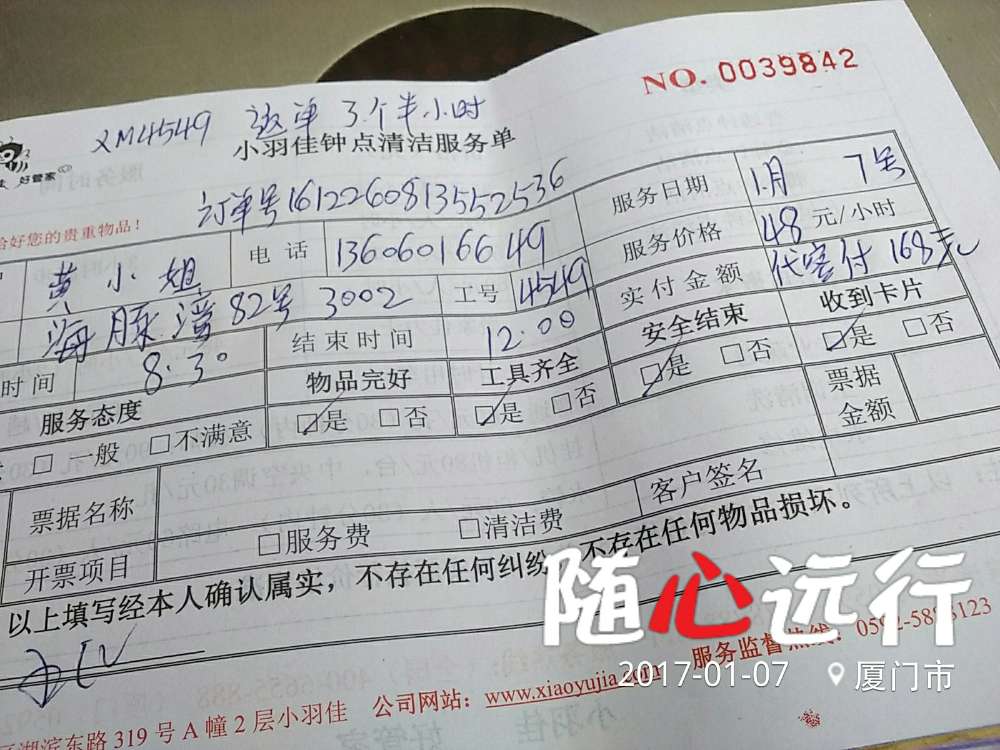 NO. 0039842
XM4549 返单 3个半小时
小羽佳钟点清洁服务单
好管家
订单号1612260813552536
恰好您的贵重物品!
服务日期 1.月 7号
黄小姐 电话 13606016649 服务价格 48元/小时
海豚湾82号3002 工号 4549 实付金额 代客付168元
时间 8.30 结束时间 12.00 安全结束 收到卡片
服务态度 物品完好 工具齐全 是 否 是 否
一般 不满意 是 否 是 否 票据金额
票据名称 客户签名
开票项目 服务费 清洁费
以上填写经本人确认属实,不存在任何纠纷,不存在任何物品损坏。
随心远行
服务监督热线:
2017-01-07 厦门市
湖滨东路319号A幢2层小羽佳 公司网站:www.xiaoyujia.com